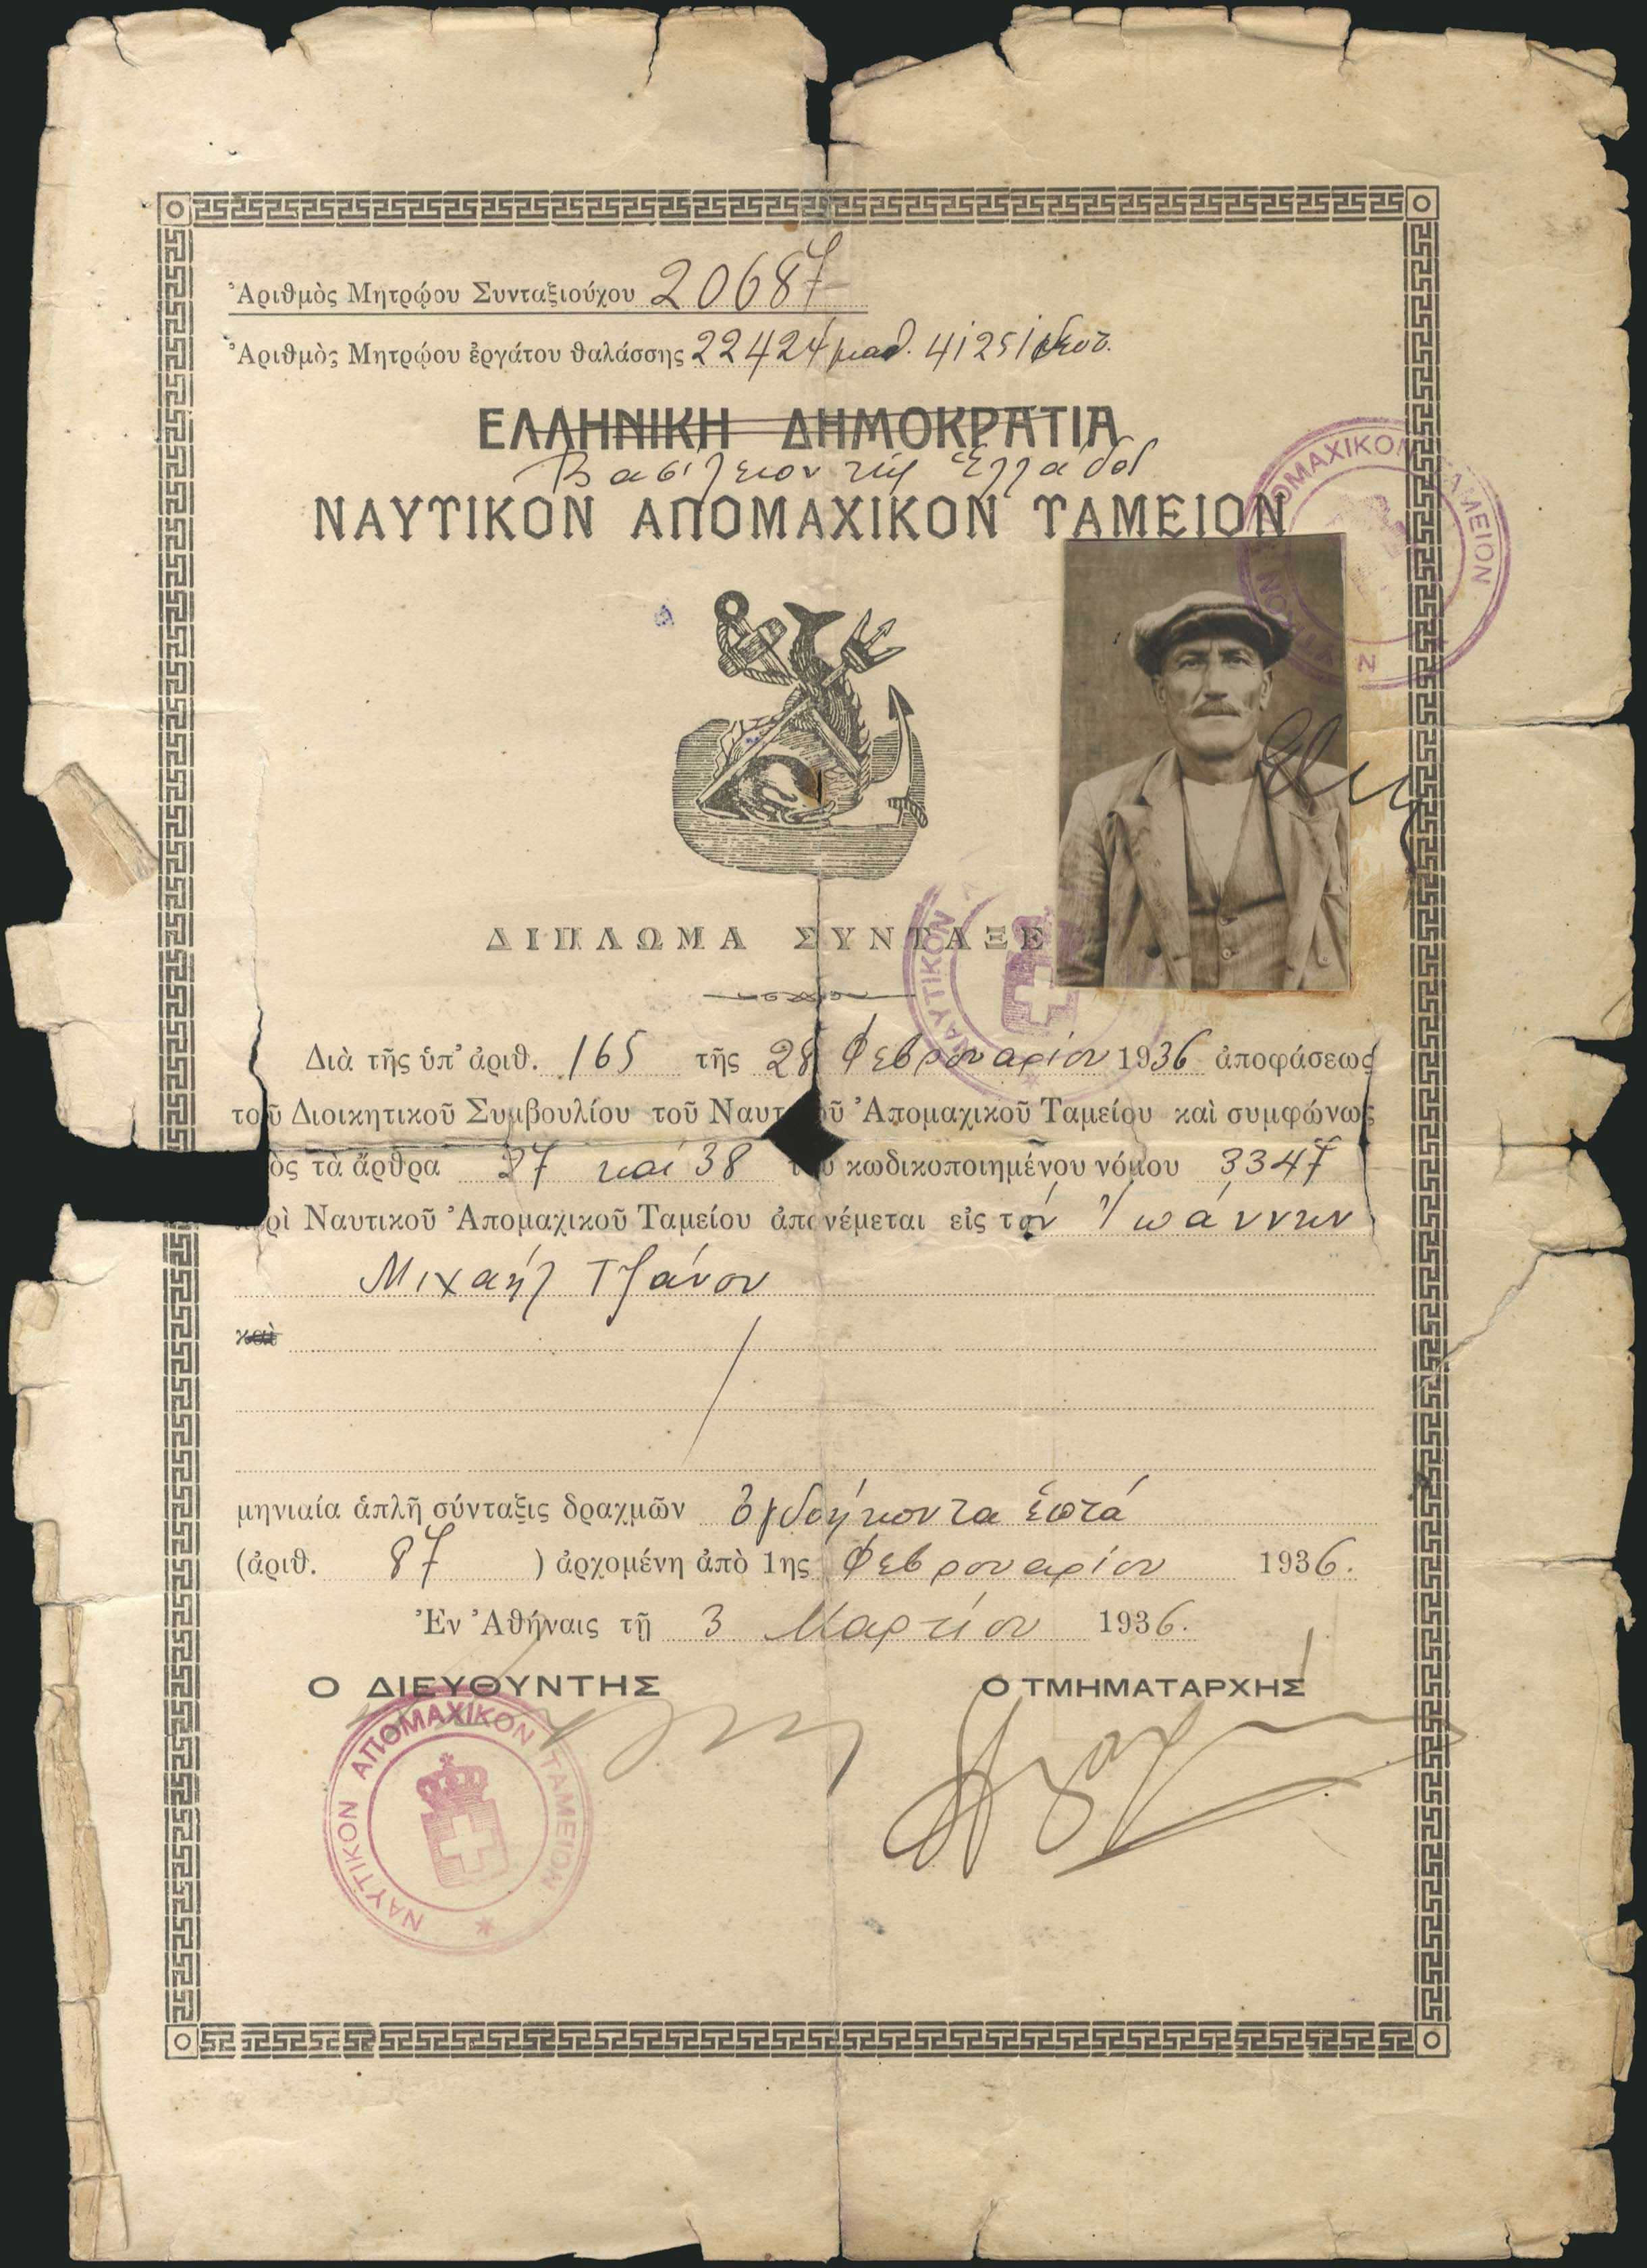 Ἀριθμὸς Μητρῴου Συνταξιούχου 20687
Ἀριθμὸς Μητρῴου ἐργάτου θαλάσσης 22424 μαθ. 41251 ναυτ.
ΕΛΛΗΝΙΚΗ ΔΗΜΟΚΡΑΤΙΑ
Βασίλειον τῆς Ἑλλάδος
ΝΑΥΤΙΚΟΝ ΑΠΟΜΑΧΙΚΟΝ ΤΑΜΕΙΟΝ
ΝΑΥΤΙΚΟΝ ΑΠΟΜΑΧΙΚΟΝ ΤΑΜΕΙΟΝ
ΔΙΠΛΩΜΑ ΣΥΝΤΑΞΕ
ΝΑΥΤΙΚΟΝ
Διὰ τῆς ὑπ' ἀριθ. 165 τῆς 28 Φεβρουαρίου 1936 ἀποφάσεως
τοῦ Διοικητικοῦ Συμβουλίου τοῦ Ναυτ οῦ Ἀπομαχικοῦ Ταμείου καὶ συμφώνως
ὸς τὰ ἄρθρα 37 καὶ 38 τοῦ κωδικοποιημένου νόμου 3347
ρὶ Ναυτικοῦ Ἀπομαχικοῦ Ταμείου ἀπονέμεται εἰς τόν Ἰωάννην
Μιχαήλ Τζάνου
καὶ
μηνιαία ἁπλῆ σύνταξις δραχμῶν ὀγδοήκοντα ἑπτά
(ἀριθ. 87 ) ἀρχομένη ἀπὸ 1ης Φεβρουαρίου 1936.
Ἐν Ἀθήναις τῇ 3 Μαρτίου 1936.
Ο ΔΙΕΥΘΥΝΤΗΣ Ο ΤΜΗΜΑΤΑΡΧΗΣ
ΝΑΥΤΙΚΟΝ ΑΠΟΜΑΧΙΚΟΝ ΤΑΜΕΙΟΝ